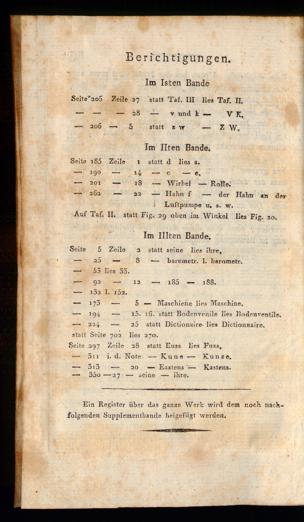 Berichtigungen.
Im Isten Bande
Seite 205 Zeile 27 statt Taf. III lies Taf. II.
— — — 28 — v und k — V K,
— 206 — 5 statt z w — Z W.
Im IIten Bande.
Seite 185 Zeile 1 statt d lies a.
— 190 — 14 — c — e.
— 201 — 18 — Wirbel — Rolle.
— 262 — 22 — Hahn f — der Hahn an der
Luftpumpe u. s. w.
Auf Taf. II. statt Fig. 29 oben im Winkel lies Fig. 20.
Im IIIten Bande.
Seite 5 Zeile 2 statt seine lies ihre,
— 25 — 8 — barometr. l. barometr.
— 53 lies 33.
— 92 — 12 — 185 — 188.
— 132 l. 152.
— 173 — 5 — Maschiene lies Maschine.
— 194 — 15. 16. statt Bodenvenile lies Bodenventile.
— 224 — 25 statt Dictionaire lies Dictionnaire.
statt Seite 702 lies 270.
Seite 297 Zeile 28 statt Euss lies Fuss,
— 311 i. d. Note — Kune — Kunze.
— 313 — 20 — Eastens — Kastens.
— 350 — 27 — seine — ihre.
Ein Register über das ganze Werk wird dem noch nach-
folgenden Supplementbande beigefügt werden.